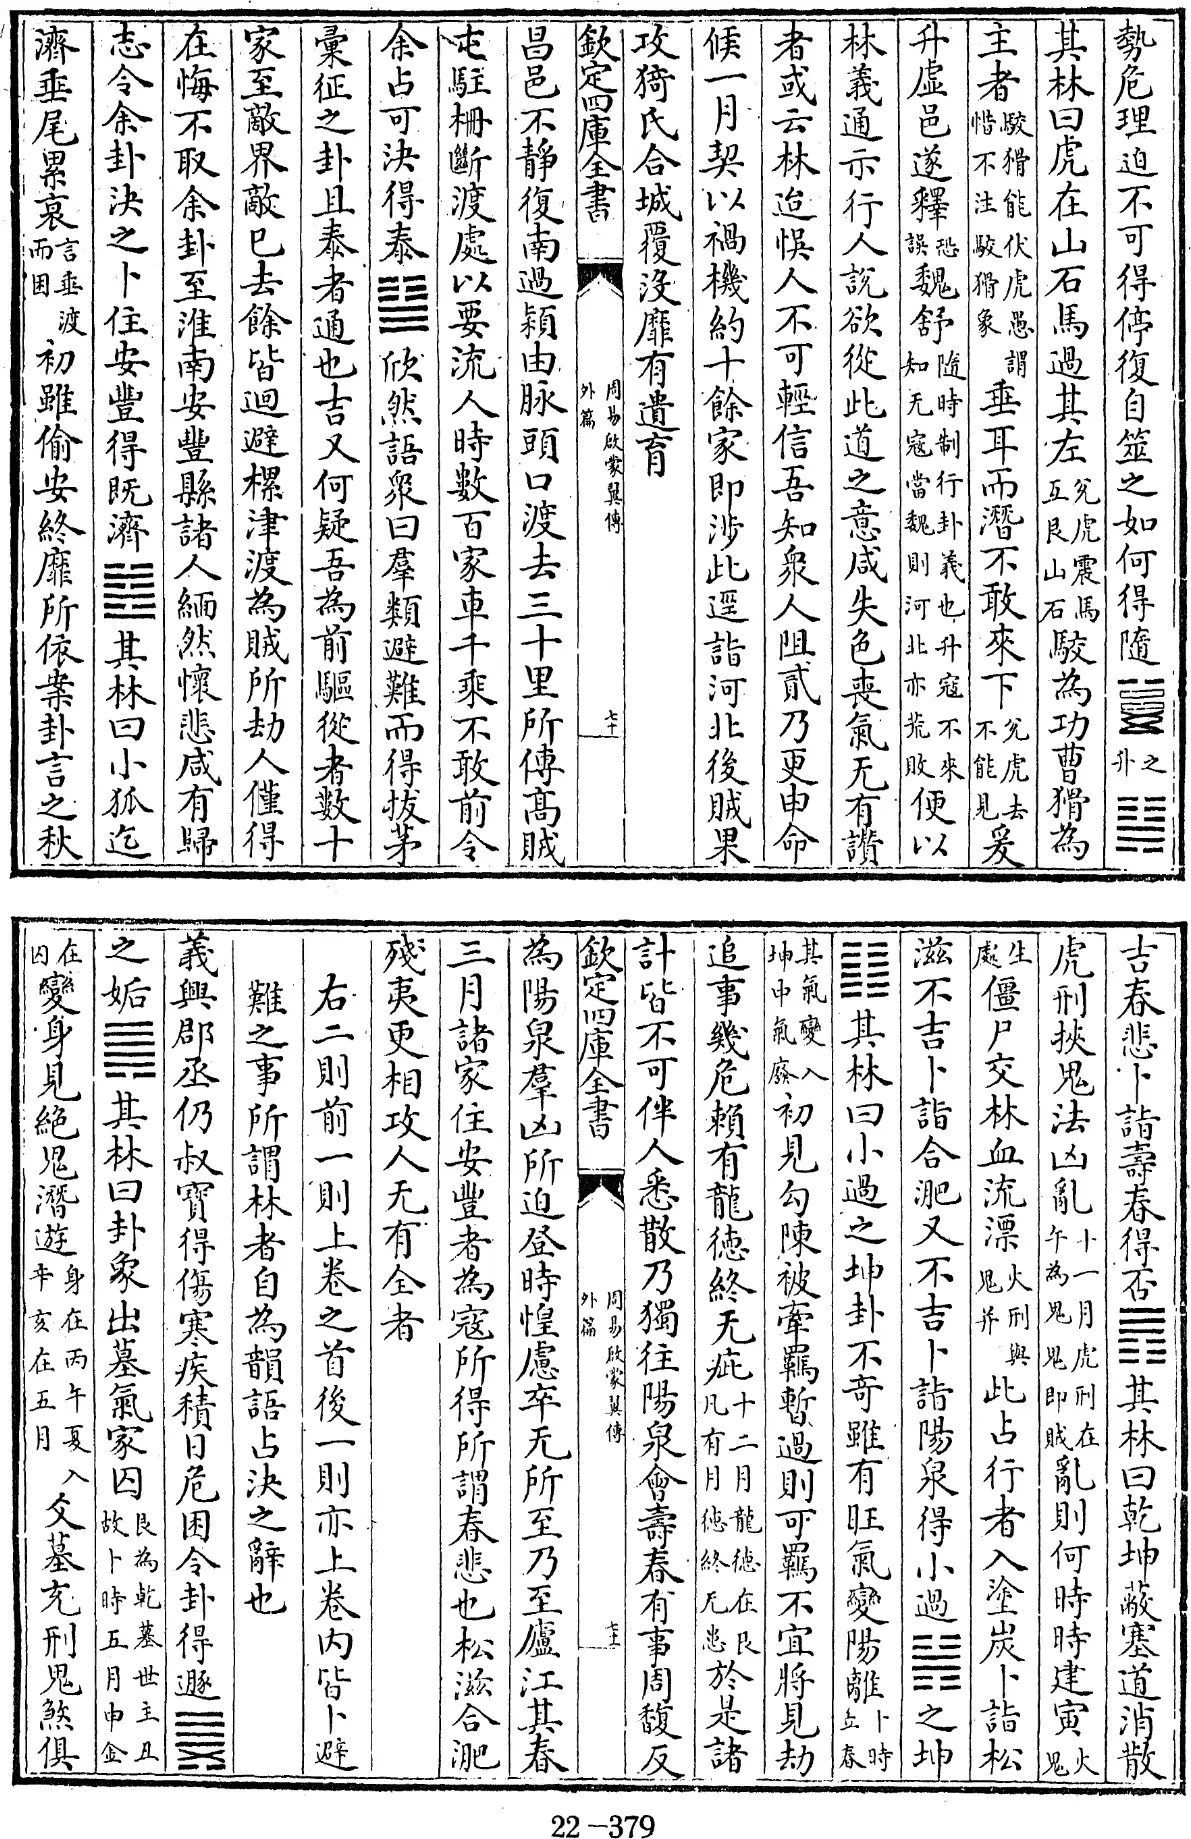 勢危理迫不可得停復自筮之如何得隨之升
其林曰虎在山石馬過其左兌虎震馬互艮山石駮為功曹猾為
主者駮猾能伏虎愚謂惜不注駮猾象垂耳而潛不敢來下兌虎去不能見爰
升虛邑遂釋恐誤魏舒隨時制行卦義也升寇不來知无寇當魏則河北亦荒敗便以
林義通示行人說欲從此道之意咸失色喪氣无有讚
者或云林迨悞人不可輕信吾知衆人阻貳乃更申命
候一月契以禍機約十餘家即涉此逕詣河北後賊果
攻猗氏合城覆没靡有遺育
欽定四庫全書 周易啟蒙翼傳外篇 七十
昌邑不靜復南過潁由脉頭口渡去三十里所傳髙賊
屯駐柵斷渡處以要流人時數百家車千乘不敢前令
余占可決得泰䷊欣然語衆曰羣類避難而得拔茅
彙征之卦且泰者通也吉又何疑吾為前驅從者數十
家至敵界敵已去餘皆迴避樏津渡為賊所劫人僅得
在悔不取余卦至淮南安豐縣諸人緬然懷悲咸有歸
志令余卦決之卜住安豐得既濟䷾其林曰小狐迄
濟垂尾累衰言垂渡而困初雖偷安終靡所依案卦言之秋
吉春悲卜詣壽春得否䷋其林曰乾坤蔽塞道消散
虎刑挾鬼法凶亂十一月虎刑在午為鬼鬼即賊亂則何時時建寅火鬼
生處僵尸交林血流漂火刑與鬼并此占行者入塗炭卜詣松
滋不吉卜詣合淝又不吉卜詣陽泉得小過䷽之坤
䷁其林曰小過之坤卦不奇雖有旺氣變陽離卜時立春
其氣變入坤中氣廢初見勾陳被牽羈暫過則可羈不宜將見劫
追事幾危賴有龍徳終无疵十二月龍徳在艮凡有月徳終无患於是諸
計皆不可伴人悉散乃獨往陽泉會壽春有事周馥反
欽定四庫全書 周易啟蒙翼傳外篇 七十一
為陽泉羣凶所迫登時惶慮卒无所至乃至廬江其春
三月諸家住安豐者為寇所得所謂春悲也松滋合淝
殘夷更相攻人无有全者
右二則前一則上卷之首後一則亦上卷内皆卜避
難之事所謂林者自為韻語占決之辭也
義興郡丞仍叔寳得傷寒疾積日危困令卦得遯䷠
之姤䷫其林曰卦象出墓氣家囚艮為乾墓世主丑故卜時五月申金
在囚變身見絶鬼潛遊身在丙午夏入辛亥在五月爻墓充刑鬼煞俱
22-379